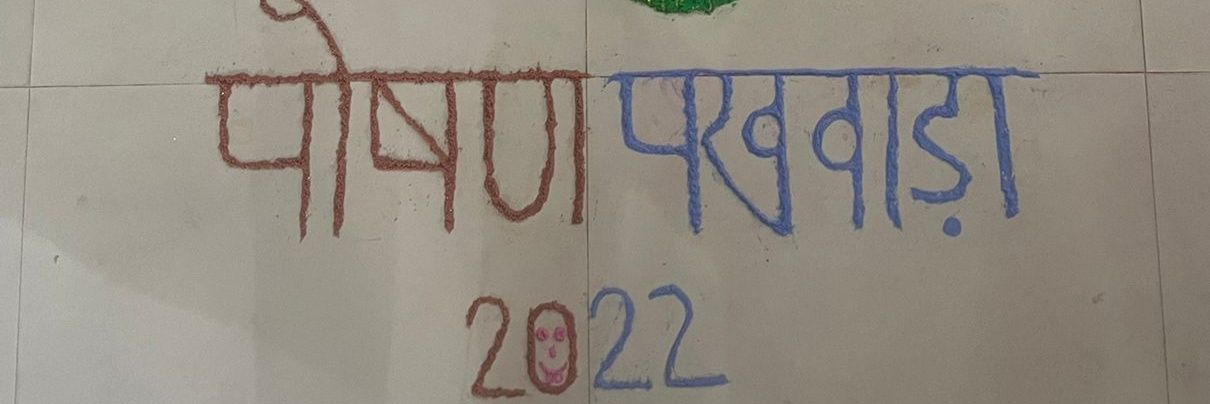 पोषण पखवाड़ा
2022